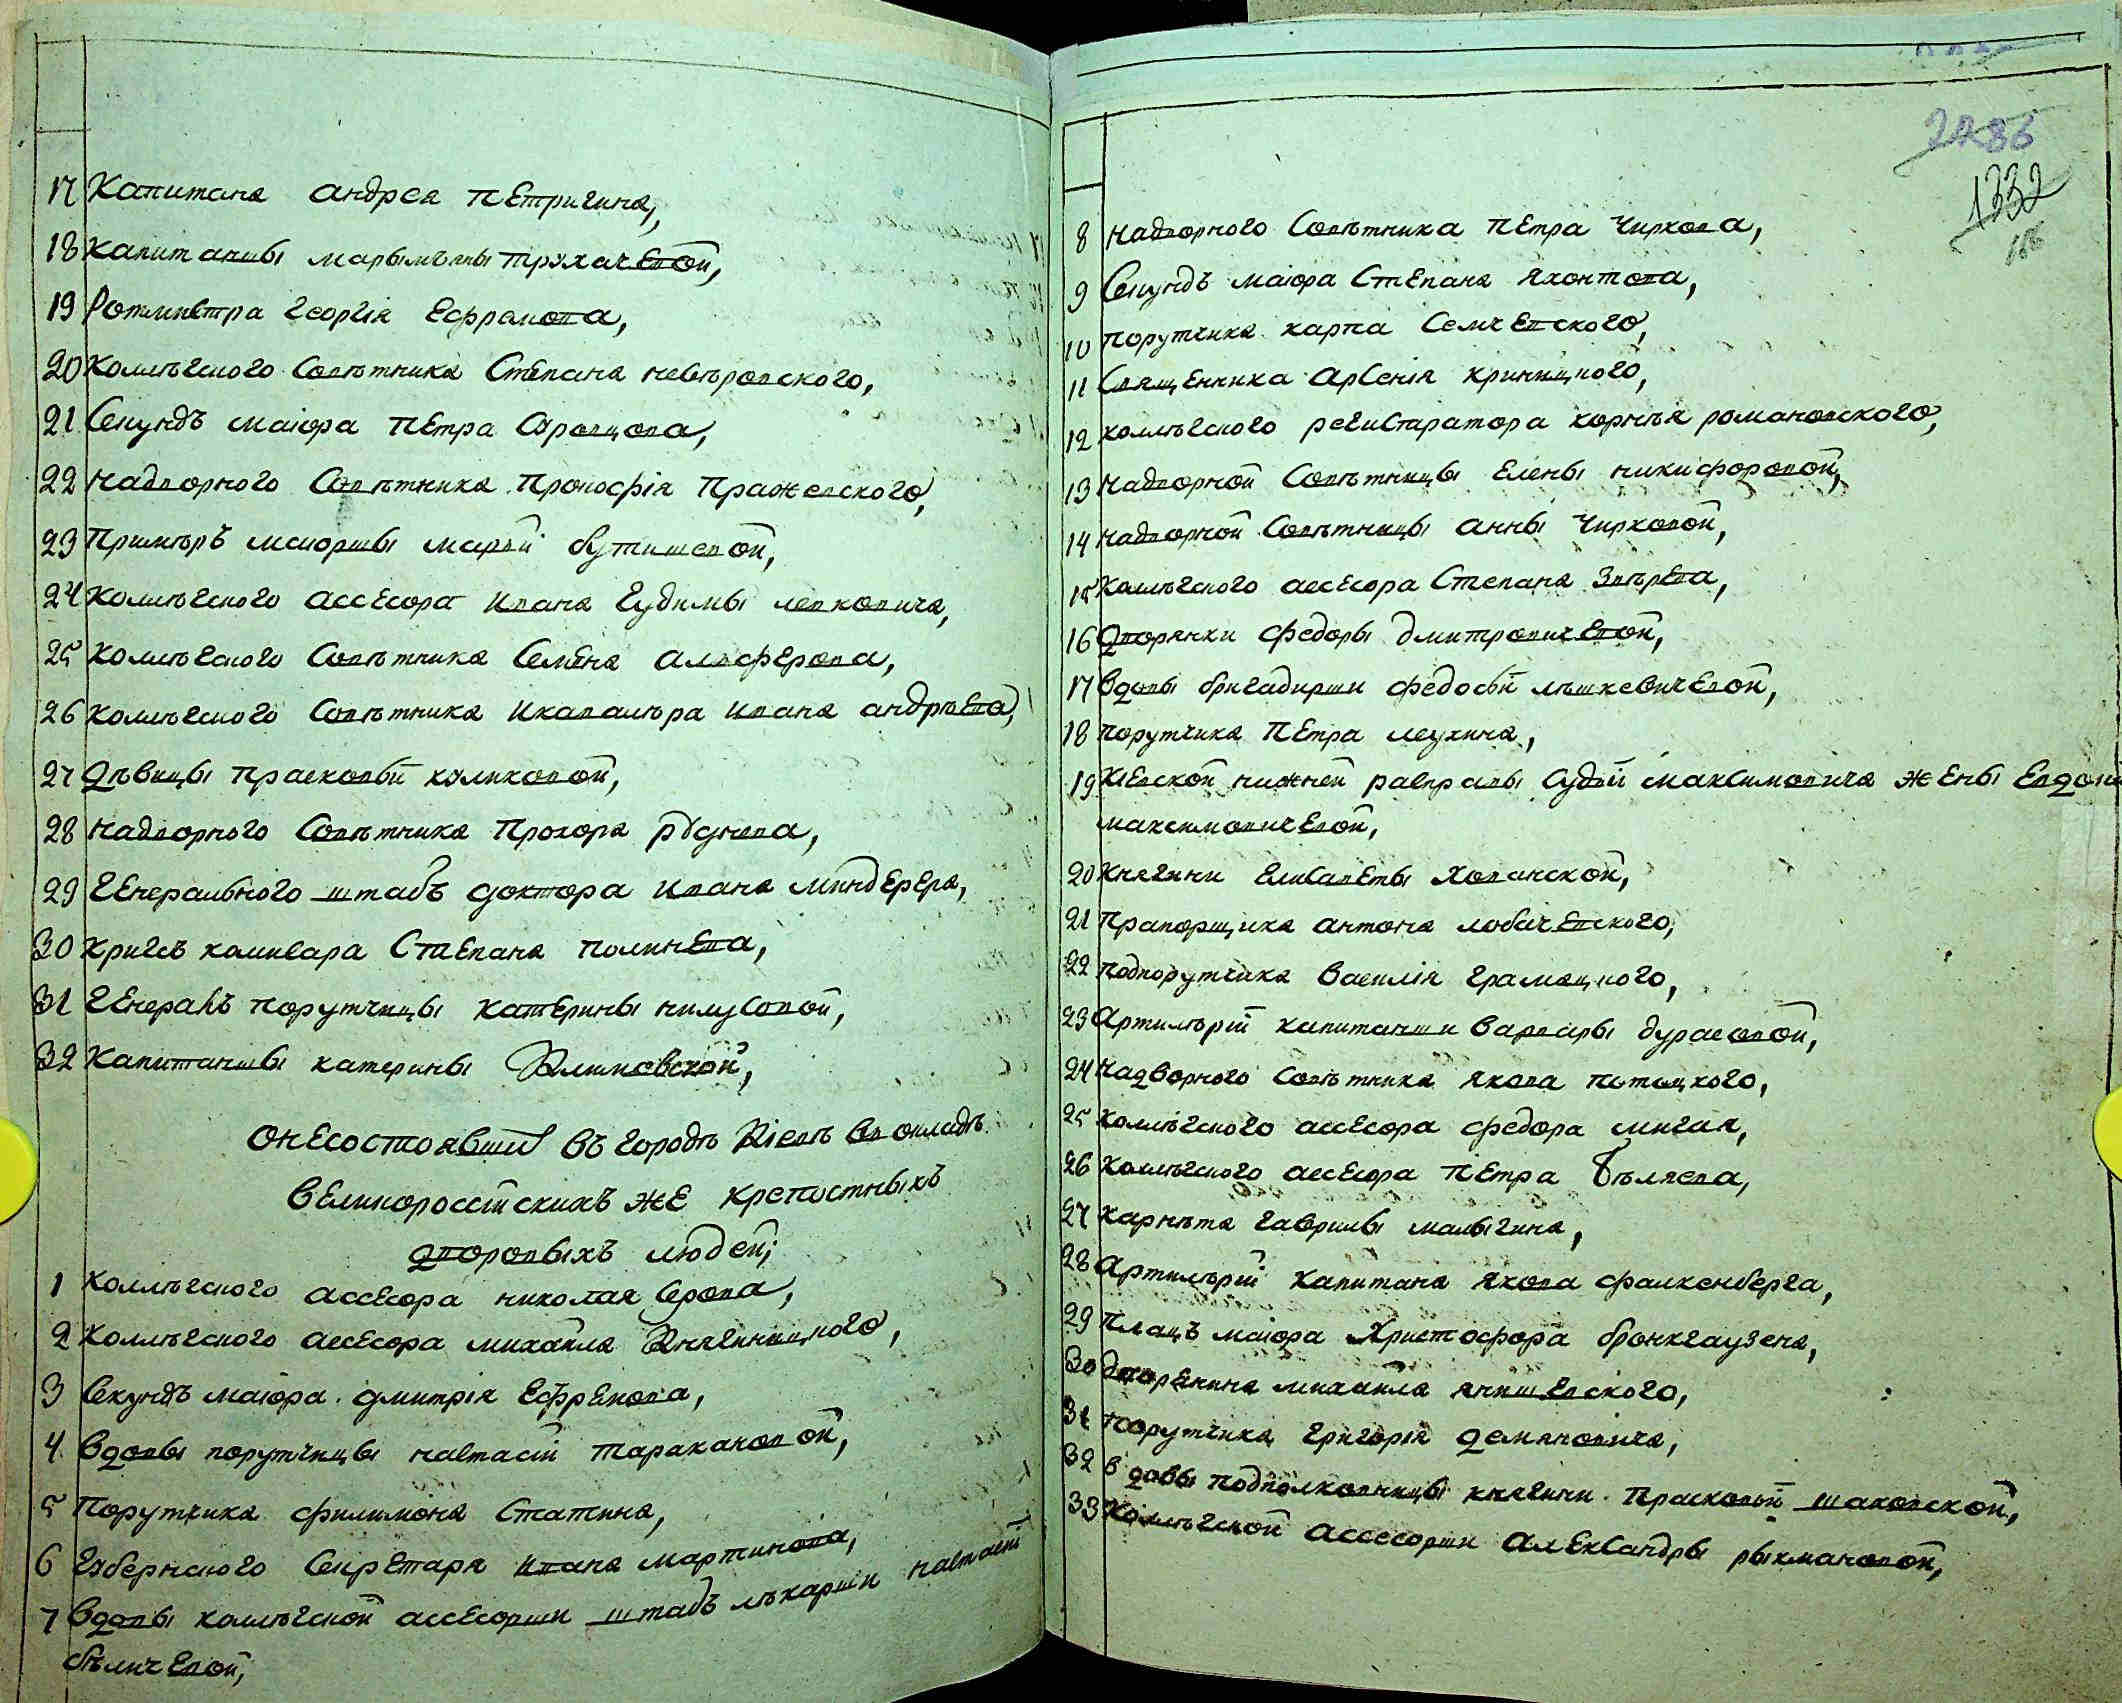 17 Капитана андрея петригина,
18 Капитанши марьи трухачевой,
19 Ротмистра георгія Ефремова,
20 Коллѣгского Совѣтника Степана неверовского,
21 Секундъ маіора петра Суровцова,
22 надворного Совѣтника Прокофія Пражевского,
23 Примѣръ маиорши марьи бутишевой,
24 Коллѣгского ассесора ивана гудимы левковича,
25 Коллѣгского Совѣтника Семена алфѣрова,
26 Коллѣгского Совѣтника икавалѣра ивана андрѣева,
27 дѣвицы прасковьи куликовой,
28 надворного Совѣтника прохора руднева,
29 генеральнаго штабъ доктора ивана миндерера,
30 кригсъ комисара Степана полинева,
31 генералъ порутчицы катерины нилусовой,
32 капитанши катерины Климовской,
О несостоявшій въ городѣ Кіевѣ въ окладѣ
великороссійскихъ же крепостныхъ
дворовыхъ людей;
1 Коллѣгского ассесора николая Серова,
2 Коллѣгского ассесора михаила Княгиницкого,
3 Секундъ маіора дмитрія Ефремова,
4 вдовы порутчицы настасіи таракановой,
5 Порутчика филимона Статина,
6 Губернского Секретаря ивана мартинова,
7 вдовы коллѣгской ассесорши штабъ лѣкарши настасіи
бѣличевой,
2286
1332
8 надворного Совѣтника петра Чиркова,
9 Секундъ маіора Степана яхонтова,
10 порутчика карпа Семчевского,
11 Священника арсенія криницкого,
12 коллѣгского региСтратора корнѣя романовского,
13 надворной Совѣтницы Елены никифоровой,
14 надворной Совѣтницы анны Чирковой,
15 коллѣгского ассесора Степана Звѣрева,
16 дворянки федоры дмитровичевой,
17 вдовы бригадирши федосьи лѣшкевичевой,
18 порутчика петра леухина,
19 Кіевской нижней расправы Судьи максимовича жены Евдокіи
максимовичевой,
20 княгини Елисаветы Хованской,
21 прапорщика антона любачевского,
22 подпорутчика василія грамацкого,
23 Артилѣріи капитанши варвары дурасовой,
24 надворного Совѣтника якова потоцкого,
25 коллѣгского ассесора федора мигая,
26 коллѣгского ассесора петра Бѣляева,
27 карнѣта гаврилы малыгина,
28 Артилѣріи капитана якова фалкенберга,
29 плацъ маіора Христофора бронкгаузена,
30 дворянина михаила янишевского,
31 порутчика григорія демяновича,
32 вдовы подполковницы княгини прасковьи шаховской,
33 Коллѣгской ассесорши александры рыхмановой,